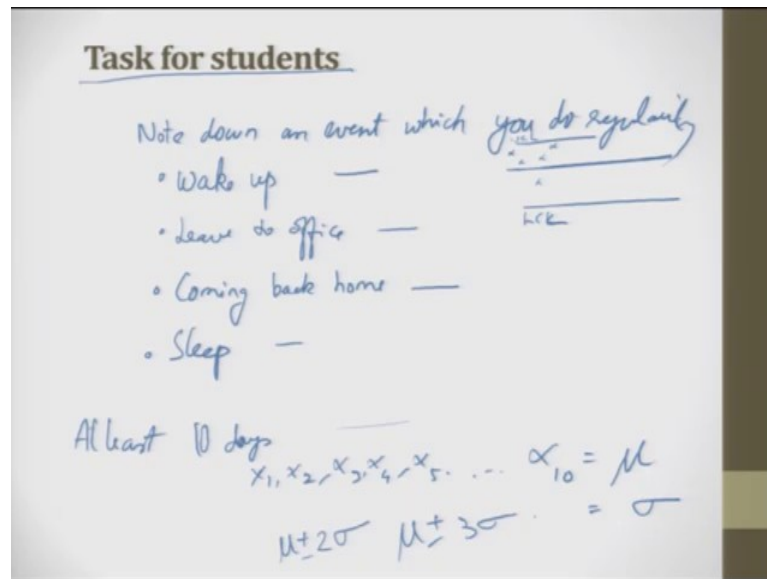 Task for students
Note down an event which you do regularly
• Wake up —
• Leave to office —
• Coming back home —
• Sleep —
Atleast 10 days
x₁, x₂, x₃, x₄, x₅. ... x₁₀ = μ
μ ± 2σ μ ± 3σ. = σ